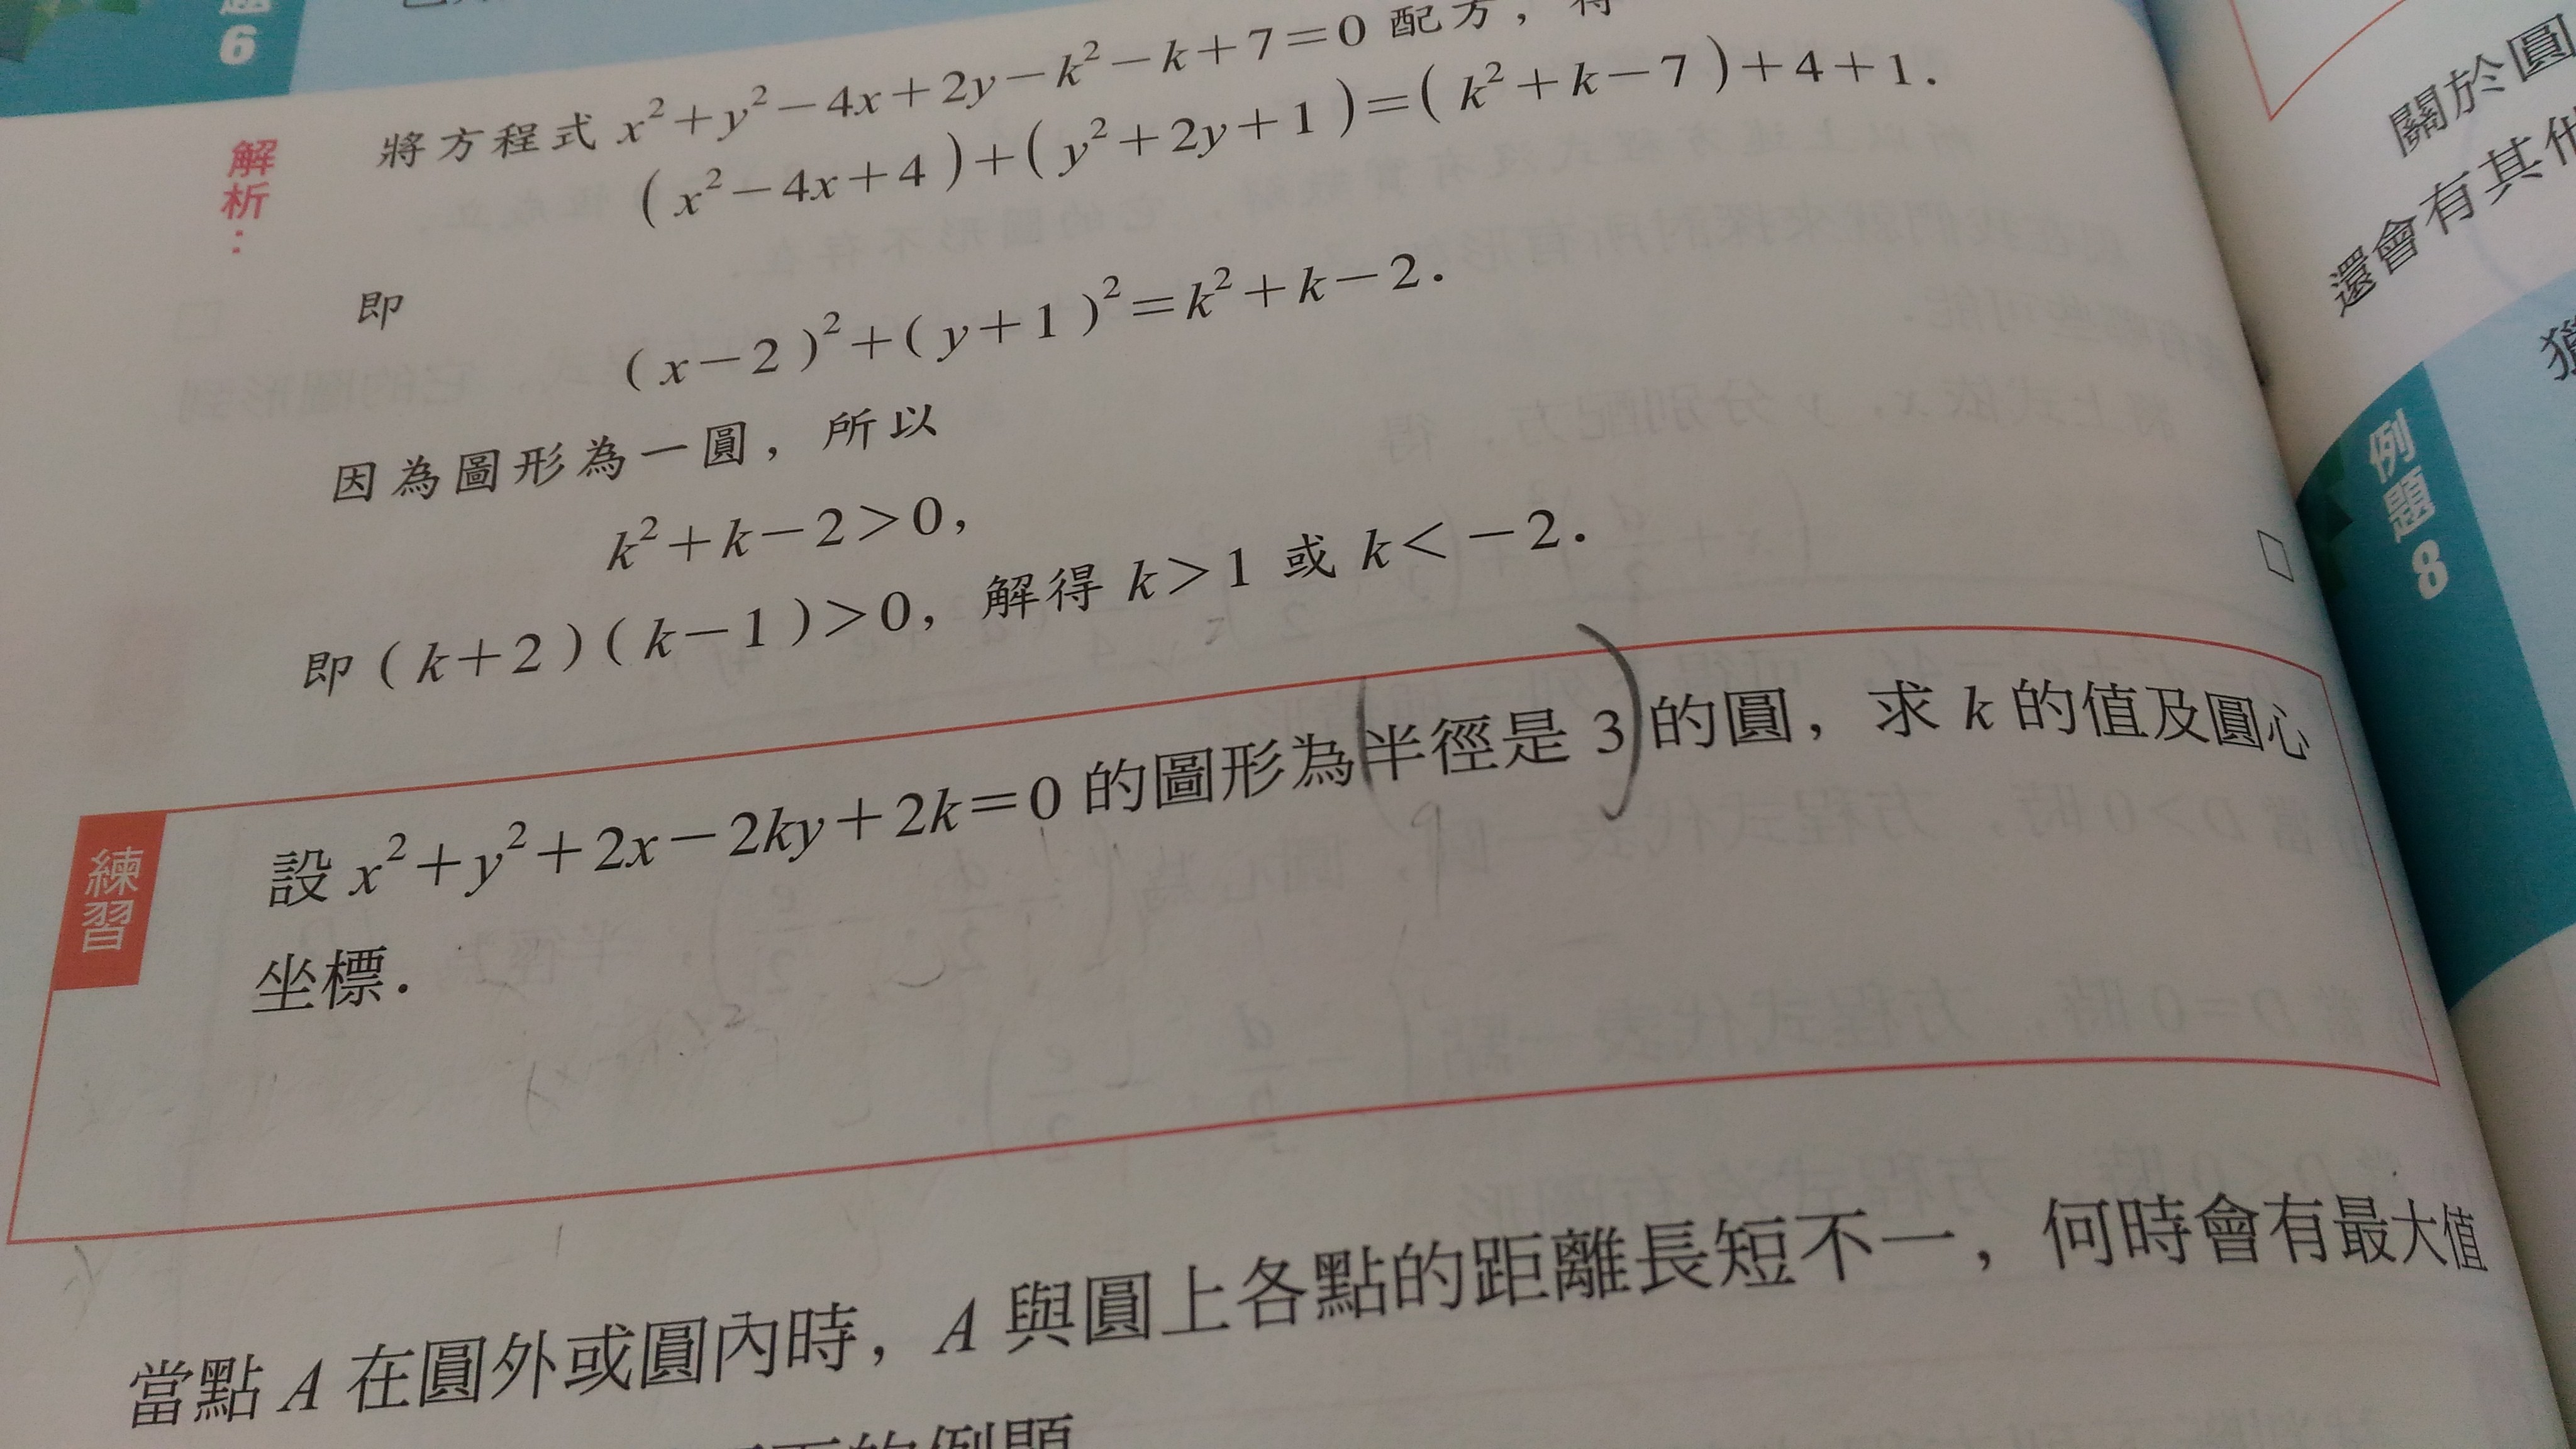 題
6
將方程式 x²+y²−4x+2y−k²−k+7=0 配方,得
解析:
(x²−4x+4)+(y²+2y+1)=(k²+k−7)+4+1.
即
(x−2)²+(y+1)²=k²+k−2.
因為圖形為一圓,所以
k²+k−2>0,
即(k+2)(k−1)>0,解得 k>1 或 k<−2. □
練習
設 x²+y²+2x−2ky+2k=0 的圖形為(半徑是 3)的圓,求 k 的值及圓心
坐標.
當點 A 在圓外或圓內時,A 與圓上各點的距離長短不一,何時會有最大值
的例題
關於圓
還會有其他
例題
8